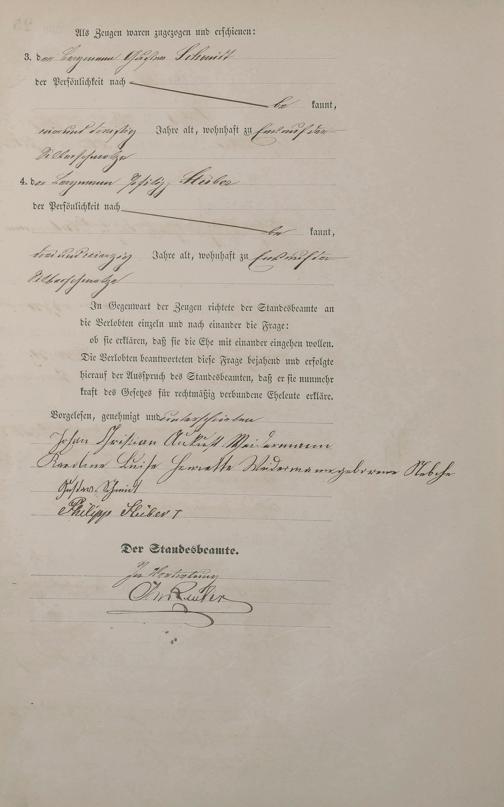 Als Zeugen waren zugezogen und erschienen:
3. der Bergmann Gustav Schmidt
der Persönlichkeit nach be kannt,
Jahre alt, wohnhaft zu Ems auf der
Silberschmelze
4. der Bergmann Philipp Stüber
der Persönlichkeit nach be kannt,
Jahre alt, wohnhaft zu Ems auf der
Silberschmelze
In Gegenwart der Zeugen richtete der Standesbeamte an
die Verlobten einzeln und nach einander die Frage:
ob sie erklären, daß sie die Ehe mit einander eingehen wollen.
Die Verlobten beantworteten diese Frage bejahend und erfolgte
hierauf der Ausspruch des Standesbeamten, daß er sie nunmehr
kraft des Gesetzes für rechtmäßig verbundene Eheleute erkläre.
Vorgelesen, genehmigt und unterschrieben
Johan Christian August Weidermann
Luise Henriette Weidermann geborene
Gustav Schmidt
Philipp Stüber
Der Standesbeamte.
In Vertretung